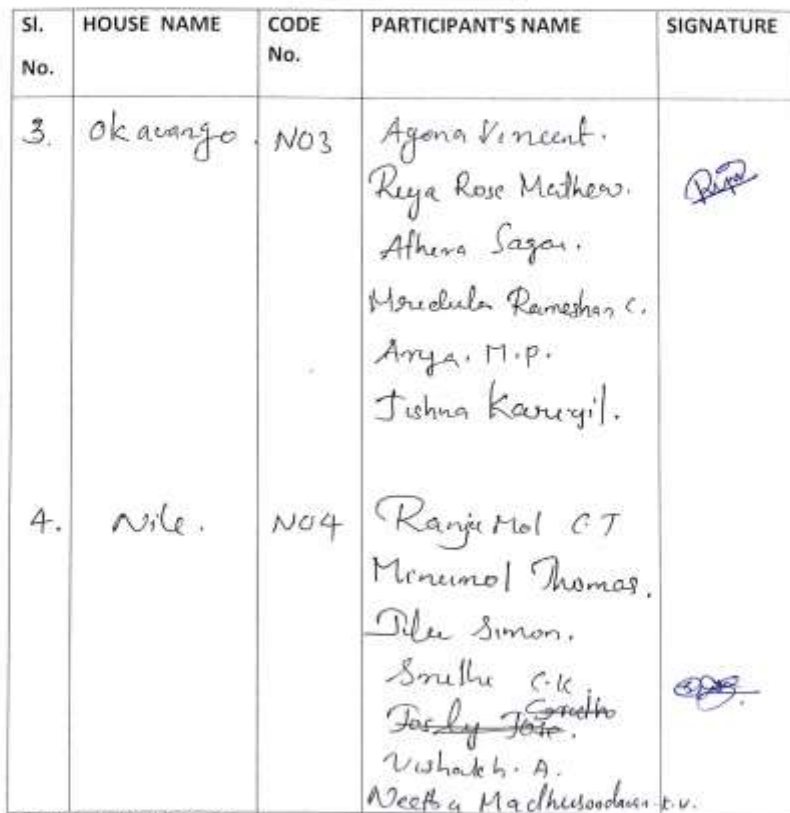 Sl. No. HOUSE NAME CODE No. PARTICIPANT'S NAME SIGNATURE
3. Okavango. NO3 Agona Vincent.
Reya Rose Mathew.
Athena Sagar.
Mredula Rameshan C.
Arya. M.P.
Jishna Karuyil.
4. Nile. NO4 Ranju Mol CT
Minumol Thomas.
Jilu Simon.
Smithe C.K
Jose.
Vishakh. A.
Neetha Madhusoodanan K.V.